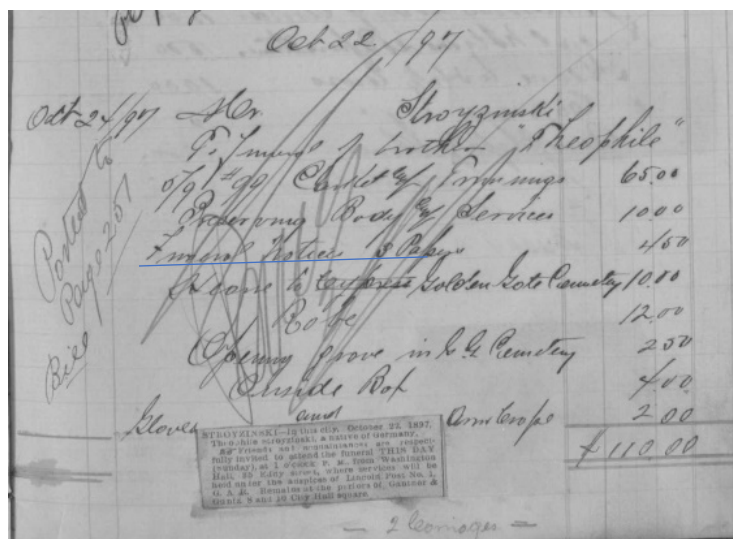 Oct 22 /97
Oct 24/97 Mr Stroyzinski
To Funeral of brother "Theophile"
5/9 #90 Casket & Trimmings 65.00
Preserving Body & Services 10 00
Funeral Notices 3 Papers 4 50
Hearse to Golden Gate Cemetery 10.00
Robe 12.00
Opening grave in G. G. Cemetery 2 50
Outside Box 4.00
Gloves and Arm Crape 2.00
$110.00
Posted to
Page 251
Bill
STROYZINSKI—In this city, October 22, 1897,
Theophile Stroyzinski, a native of Germany.
Friends and acquaintances are respect-
fully invited to attend the funeral THIS DAY
(Sunday), at 1 o'clock P. M., from Washington
Hall, 35 Eddy street, where services will be
held under the auspices of Lincoln Post No. 1,
G. A. R. Remains at the parlors of Gantner &
Guntz, 8 and 10 City Hall square.
— 2 Carriages —